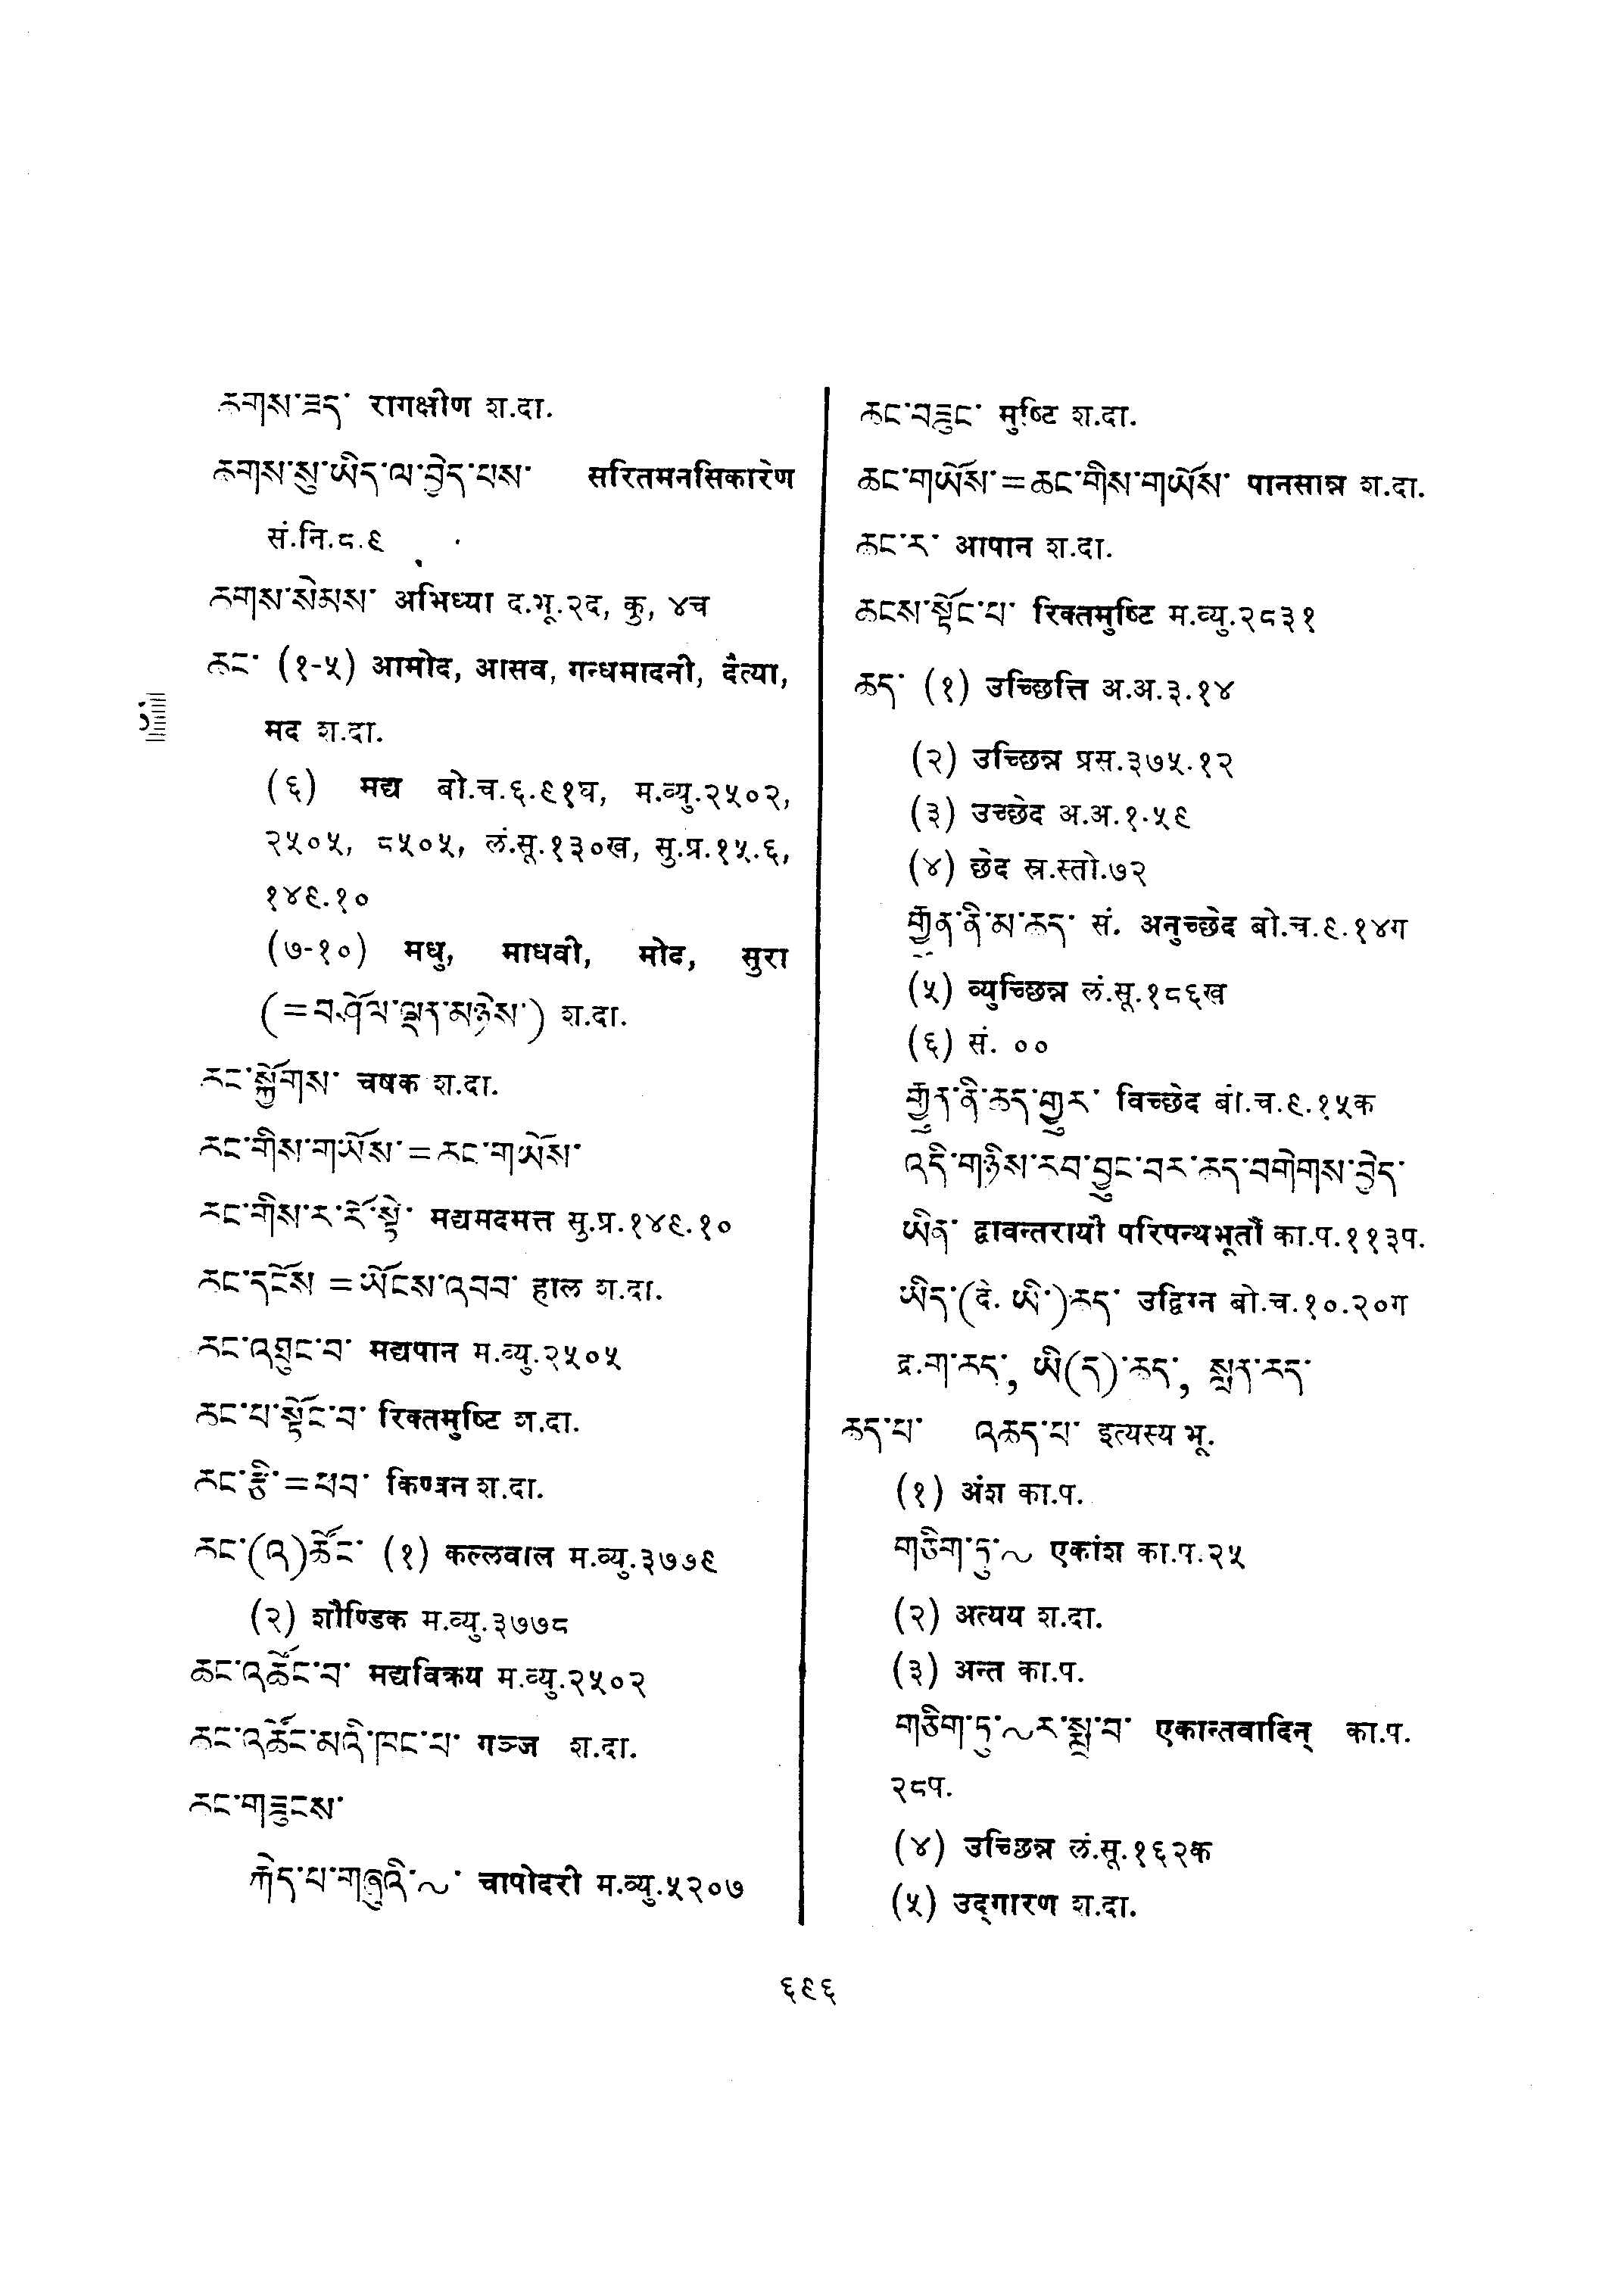 ཆགས་ཟད་ रागक्षीण श.दा.
ཆགས་སུ་ཡིད་ལ་བྱེད་པས་ सरितमनसिकारेण
सं.नि.८.९
ཆགས་སེམས་ अभिध्या द.भू.२द, कु, ४च
ཆང་ (१-५) आमोद, आसव, गन्धमादनी, दैत्या,
मद श.दा.
(६) मद्य बो.च.६.९१घ, म.व्यु.२५०२,
२५०५, ८५०५, लं.सू.१३०ख, सु.प्र.१५.६,
१४९.१०
(७-१०) मधु, माधवी, मोद, सुरा
(=བ་ཤོལ་ལྡན་མཉེས་) श.दा.
ཆང་སྐྱོགས་ चषक श.दा.
ཆང་གིས་གཡོས་=ཆང་གཡོས་
ཆང་གིས་ར་རོ་སྟེ་ मद्यमदमत्त सु.प्र.१४९.१०
ཆང་དངོས =ཡོངས་འབབ་ हाल श.दा.
ཆང་འཐུང་བ་ मद्यपान म.व्यु.२५०५
ཆང་པ་སྟོང་བ་ रिक्तमुष्टि श.दा.
ཆང་རྩི་=ཕབ་ किण्वन श.दा.
ཆང་(འ)ཚོང་ (१) कल्लवाल म.व्यु.३७७९
(२) शौण्डिक म.व्यु.३७७८
ཆང་འཚོང་བ་ मद्यविक्रय म.व्यु.२५०२
ཆང་འཚོང་མའི་ཁང་པ་ गञ्ज श.दा.
ཆང་གཟུངས་
རྐེད་པ་གཞུའི་~་ चापोदरी म.व्यु.५२०७
ཆང་བཟུང་ मुष्टि श.दा.
ཆང་གཡོས་=ཆང་གིས་གཡོས་ पानसान्न श.दा.
ཆང་ར་ आपान श.दा.
ཆངས་སྟོང་པ་ रिक्तमुष्टि म.व्यु.२८३१
ཆད་ (१) उच्छित्ति अ.अ.३.१४
(२) उच्छिन्न प्रस.३७५.१२
(३) उच्छेद अ.अ.१.५९
(४) छेद स्र.स्तो.७२
རྒྱུན་ནི་མ་ཆད་ सं. अनुच्छेद बो.च.९.१४ग
(५) व्युच्छिन्न लं.सू.१८६ख
(६) सं. ००
རྒྱུན་ནི་ཆད་གྱུར་ विच्छेद बो.च.९.१५क
འདི་གཉིས་རབ་བྱུང་བར་ཆད་བགེགས་བྱེད་
ཡིན་ द्वावन्तरायौ परिपन्थभूतौ का.प.११३प.
ཡིད་(དེ. ཡི་)ཆད་ उद्विग्न बो.च.१०.२०ग
དྲ.ག་ཆད་, ཡི(ད)་ཆད་, སླར་ཆད་
ཆད་པ་ འཆད་པ་ इत्यस्य भू.
(१) अंश का.प.
གཅིག་ཏུ་~ एकांश का.प.२५
(२) अत्यय श.दा.
(३) अन्त का.प.
གཅིག་ཏུ་~ར་སྨྲ་བ་ एकान्तवादिन् का.प.
२८प.
(४) उच्छिन्न लं.सू.१६२क
(५) उद्गारण श.दा.
६९६